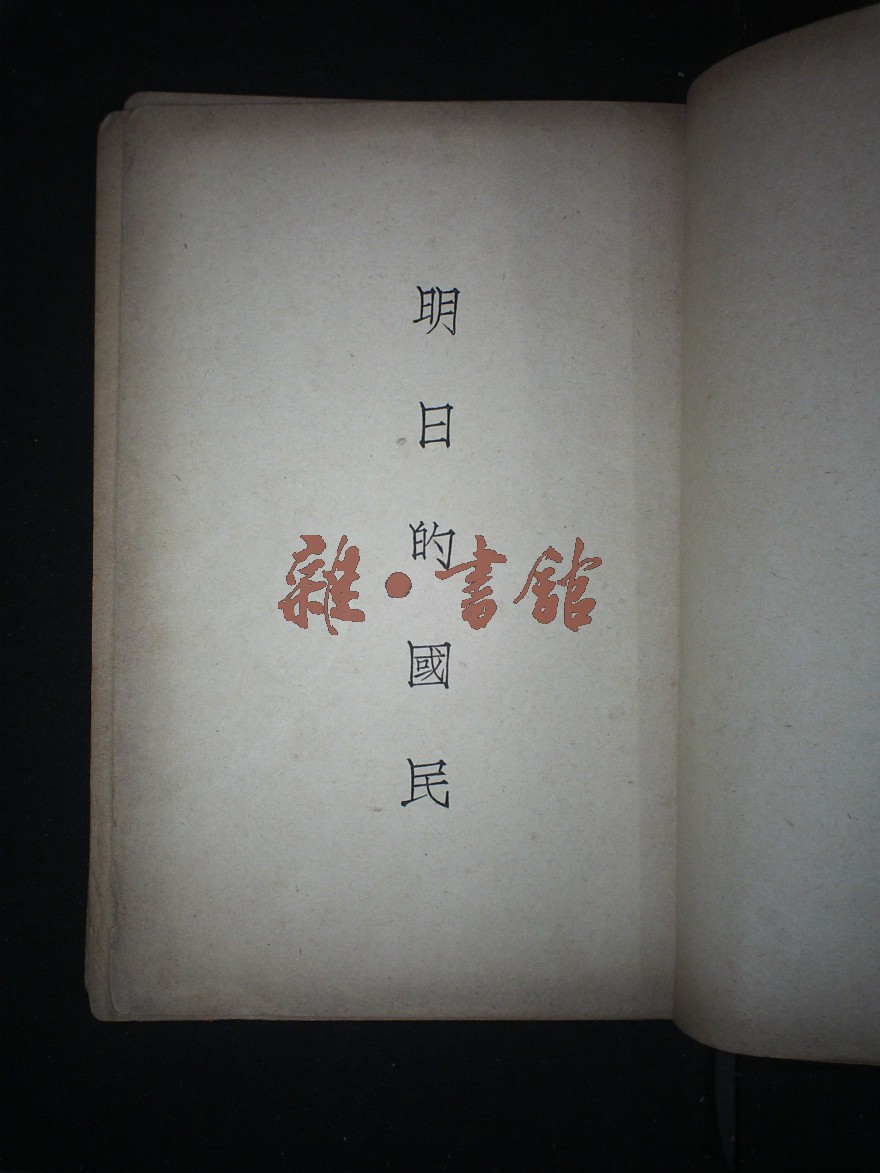 明日的國民
雜·書館